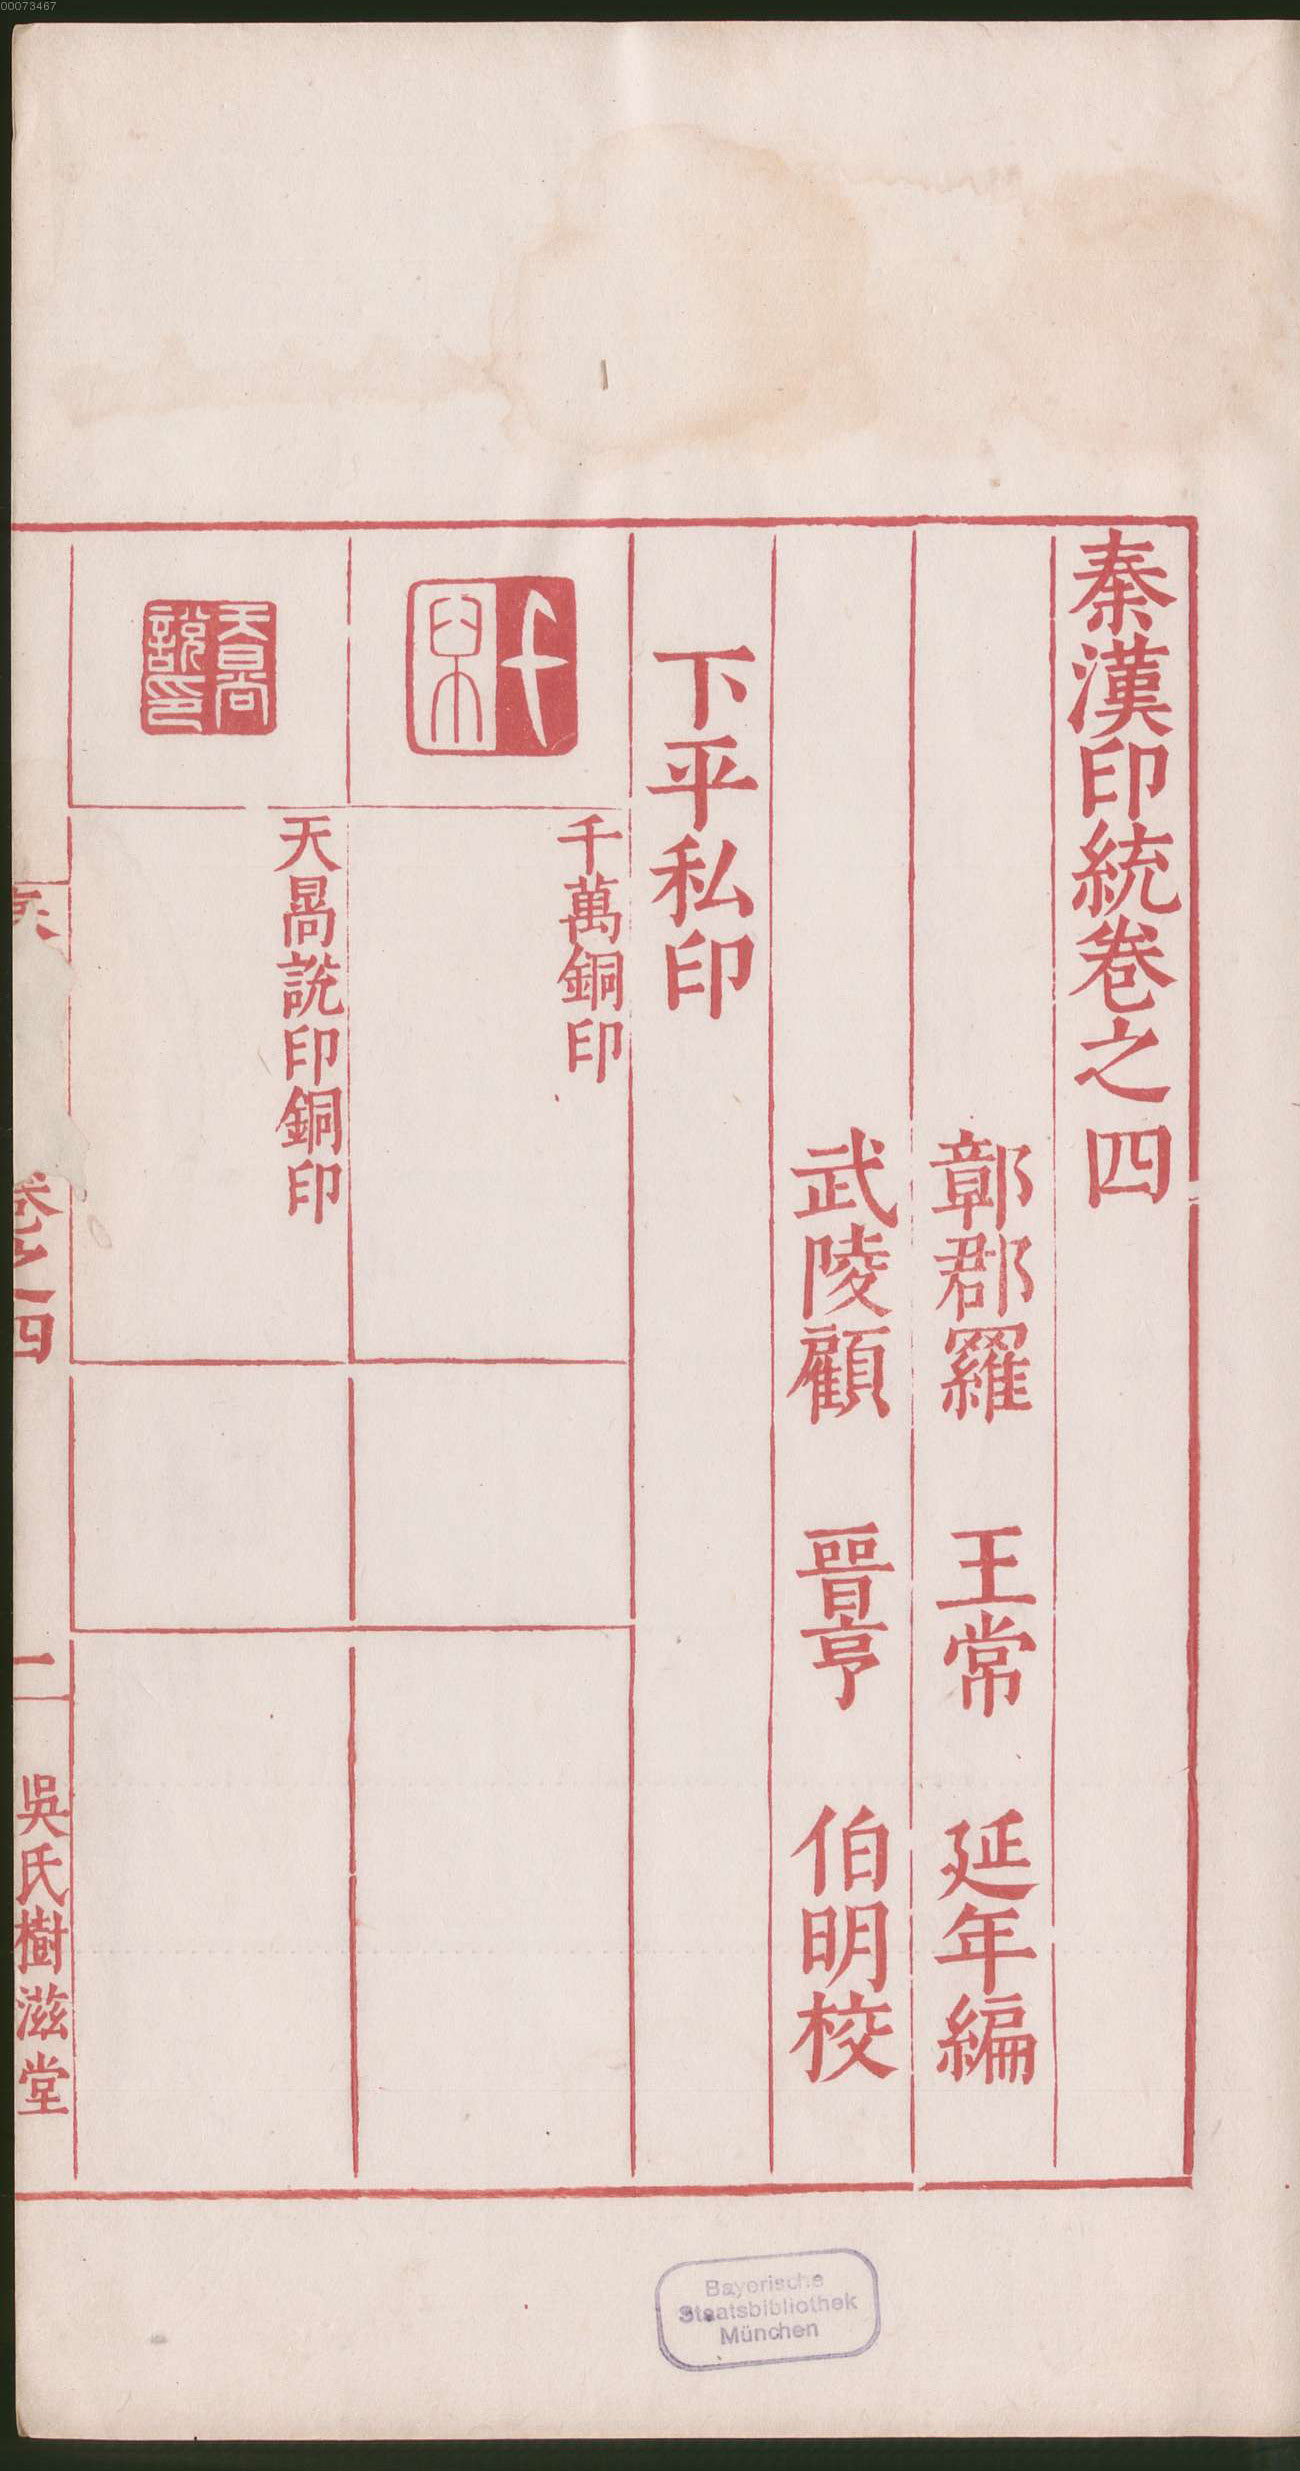 00073467
秦漢印統卷之四
鄣郡羅 王常 延年編
武陵顧 晋亨 伯明校
下平私印
千萬銅印
天暠說印銅印
卷之四
二
吳氏樹滋堂
Bayerische
Staatsbibliothek
München